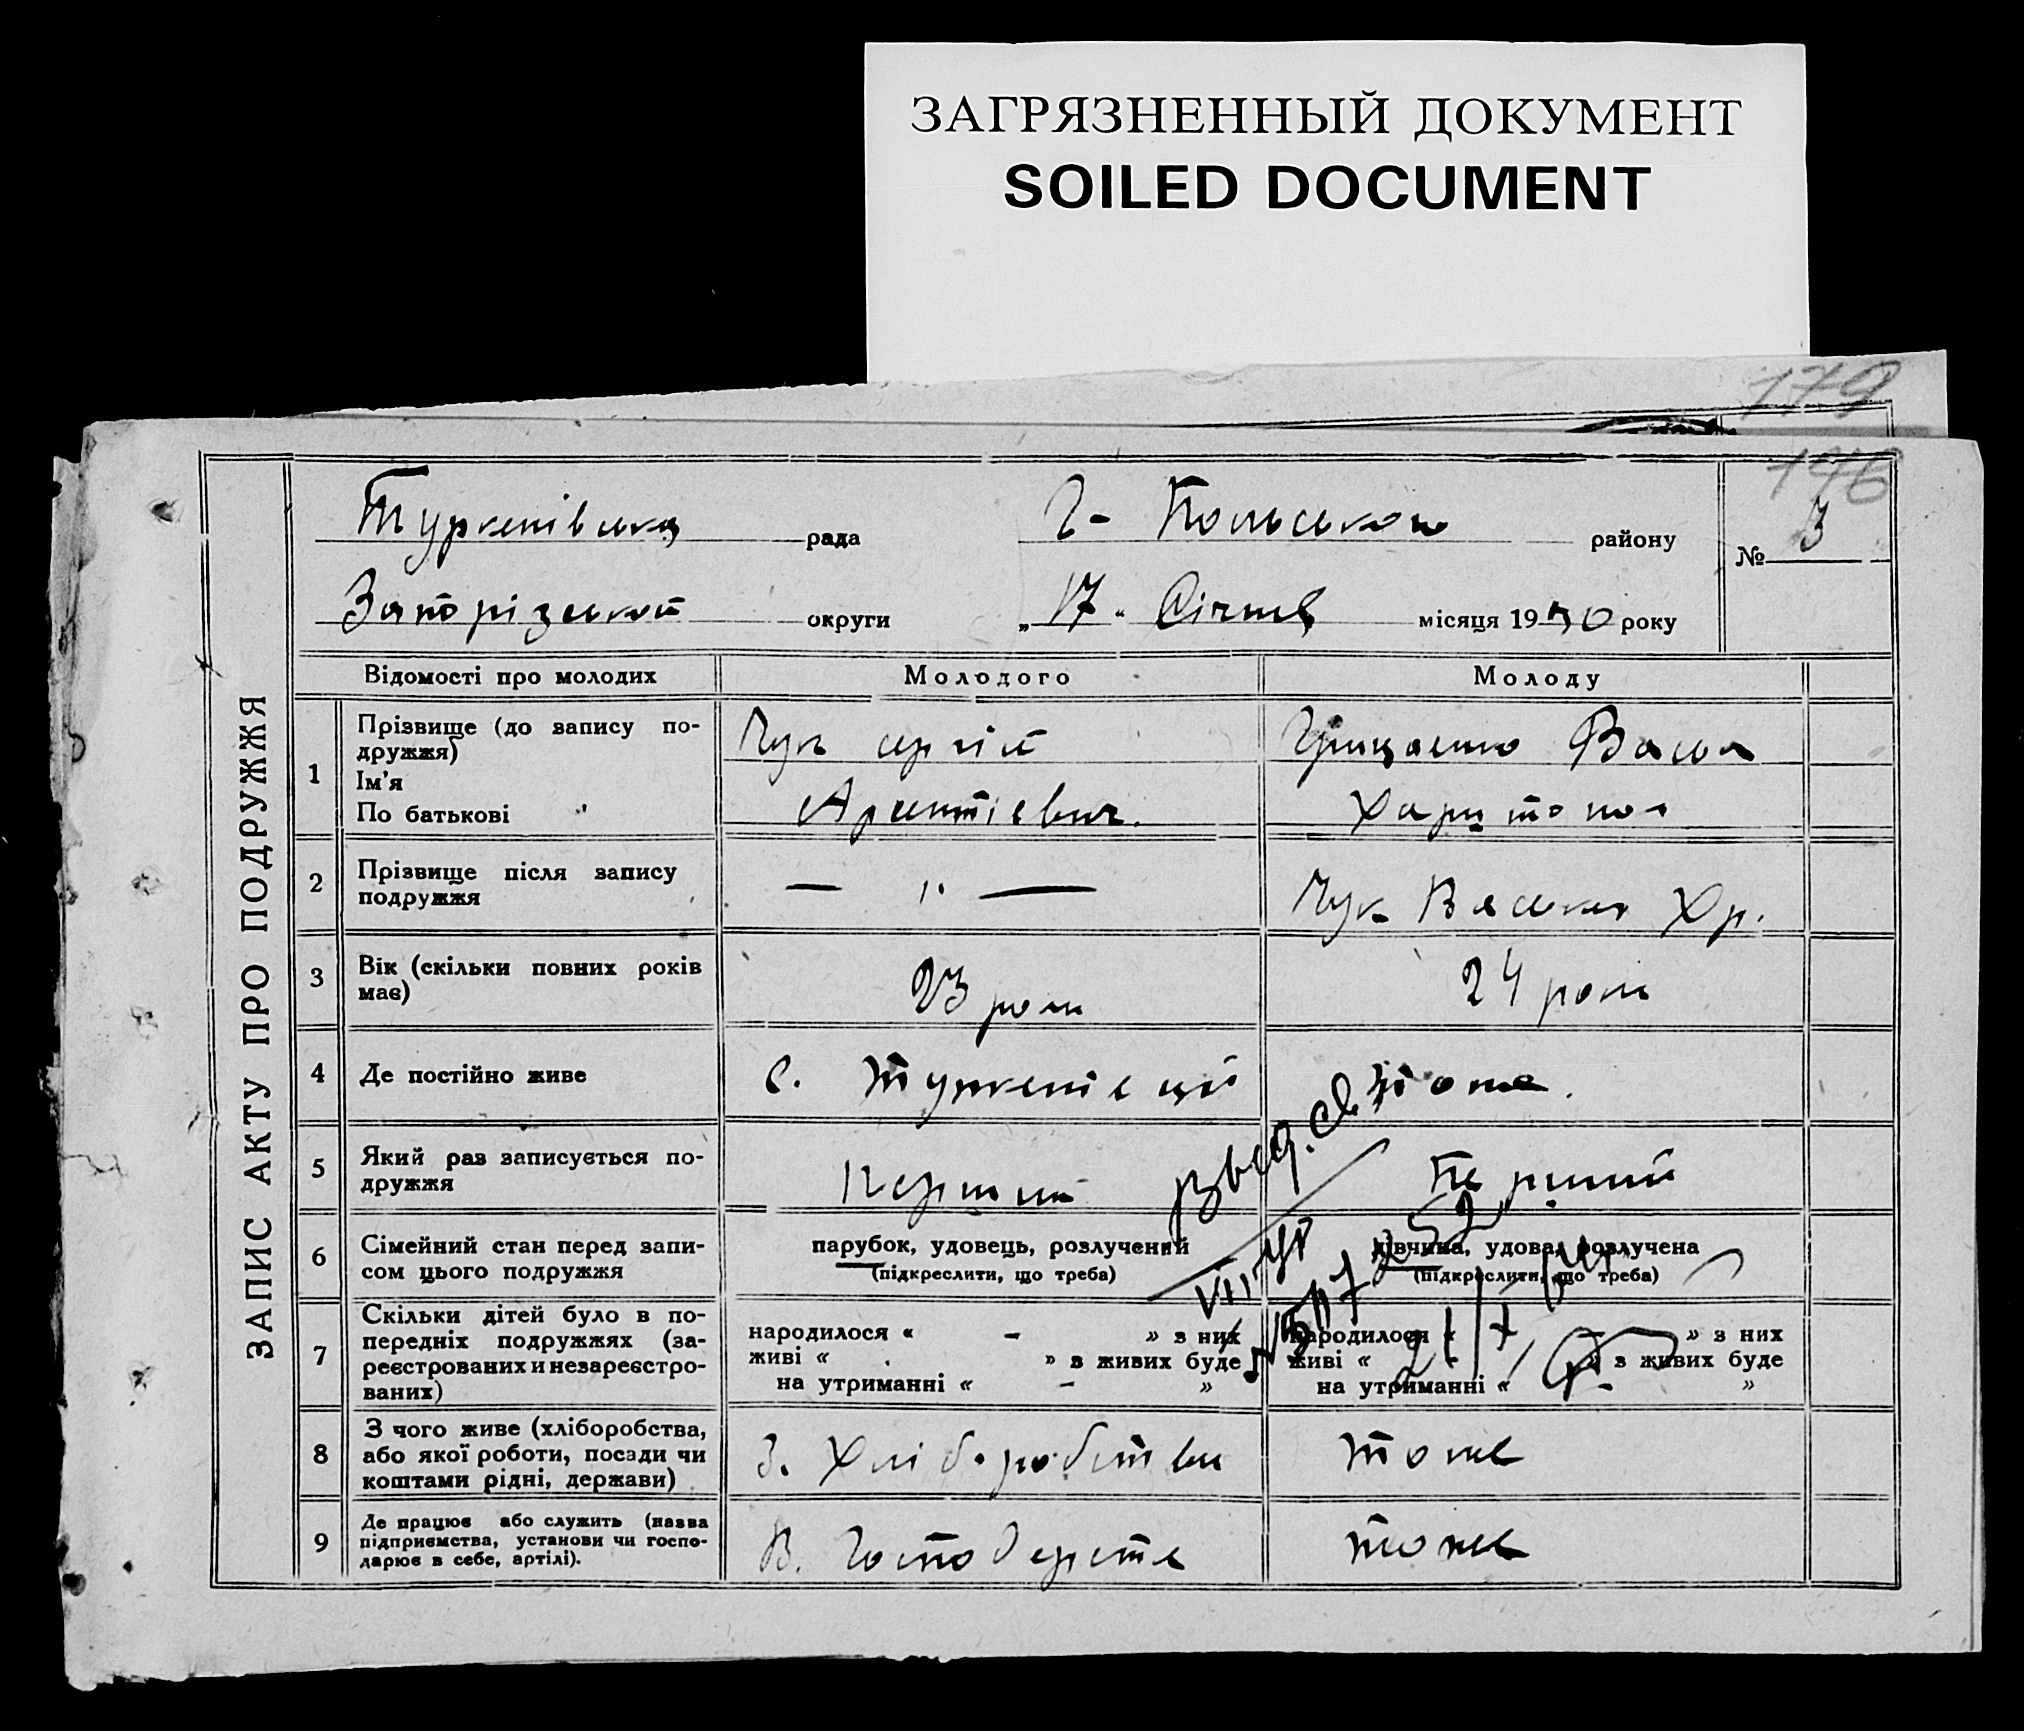 ЗАГРЯЗНЕННЫЙ ДОКУМЕНТ
SOILED DOCUMENT
179
196
ЗАПИС АКТУ ПРО ПОДРУЖЖЯ
Туркенівська рада Г-Польського району № 3
Запорізької округи „ 17 “ Січня місяця 1930 року
Відомості про молодих Молодого Молоду
1 Прізвище (до запису по-
дружжя)
Ім'я
По батькові
Чук Сергій
Арентіевич.
Грищенко Васса
Харитона
2 Прізвище після запису
подружжя
— ,, —
Чук Хр.
3 Вік (скільки повних років
має)
23 роки
24 роки
4 Де постійно живе
с.
тоже.
5 Який раз записується по-
дружжя
Перший
Перший
6 Сімейний стан перед запи-
сом цього подружжя
парубок, удовець, розлучений
(підкреслити, що треба)
дівчина, удова, розлучена
(підкреслити, що треба)
7 Скільки дітей було в по-
передніх подружжях (за-
реєстрованих и незареєстро-
ваних)
народилося « - » з них
живі « » в живих буде
на утриманні « - »
народилося « » з них
живі « » в живих буде
на утриманні « - »
8 З чого живе (хліборобства,
або якої роботи, посади чи
коштами рідні, держави)
З. Хліборобства
тоже
9 Де працює або служить (назва
підприємства, установи чи госпо-
дарює в себе, артілі).
В.
тоже